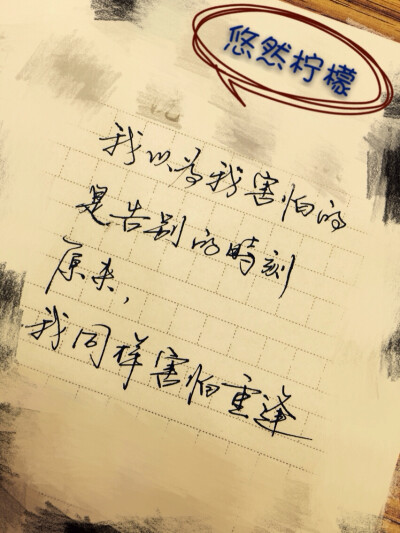 悠然柠檬
我以为我害怕的
是告别的時刻
原来，
我同样害怕重逢